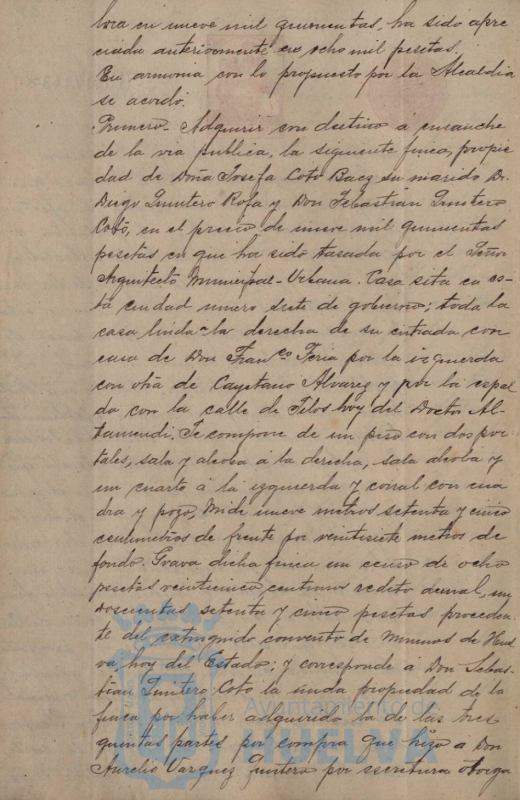 lora en nueve mil quinientas, ha sido apre
ciada anteriormente en ocho mil pesetas.
En armonia con lo propuesto por la Alcaldia
se acordó.
Primero- Adquirir con destino á ensanche
de la via publica, la siguiente finca, propie
dad de Doña Josefa Coto Baez su marido Dn.
Diego Quintero Rofa y Don Sebastián Quintero
Coto, en el precio de nueve mil quinientas
pesetas en que ha sido tasada por el Señor
Arquitecto Municipal-Urbana. Casa sita en es-
ta ciudad número siete de gobierno; toda la
casa linda la derecha de su entrada con
casa de Don Franco. Feria por la izquierda
con otra de Cayetano Alvarez y por la espal
da con la calle de Tilos hoy del Doctor Al-
tamendi, Se compone de un piso con dos por
tales, sala y alcoba á la derecha, sala alcoba y
un cuarto á la izquierda y corral con cua
dra y pozo, Mide nueve metros setenta y cinco
centímetros de frente por veintisiete metros de
fondo. Grava dicha finca un censo de ocho
pesetas veinticinco centimos redito anual, en
doscientas setenta y cinco pesetas proceden-
te del extinguido convento de Minimos de Huel
va, hoy del Estado; y corresponde á Don Sebas-
tian Quintero Coto la nuda propiedad de la
finca por haber adquirido la de las tres
quintas partes por compra que hizo á Don
Aurelio Vazquez Quintero por escritura otorga
Ayuntamiento de
HUELVA